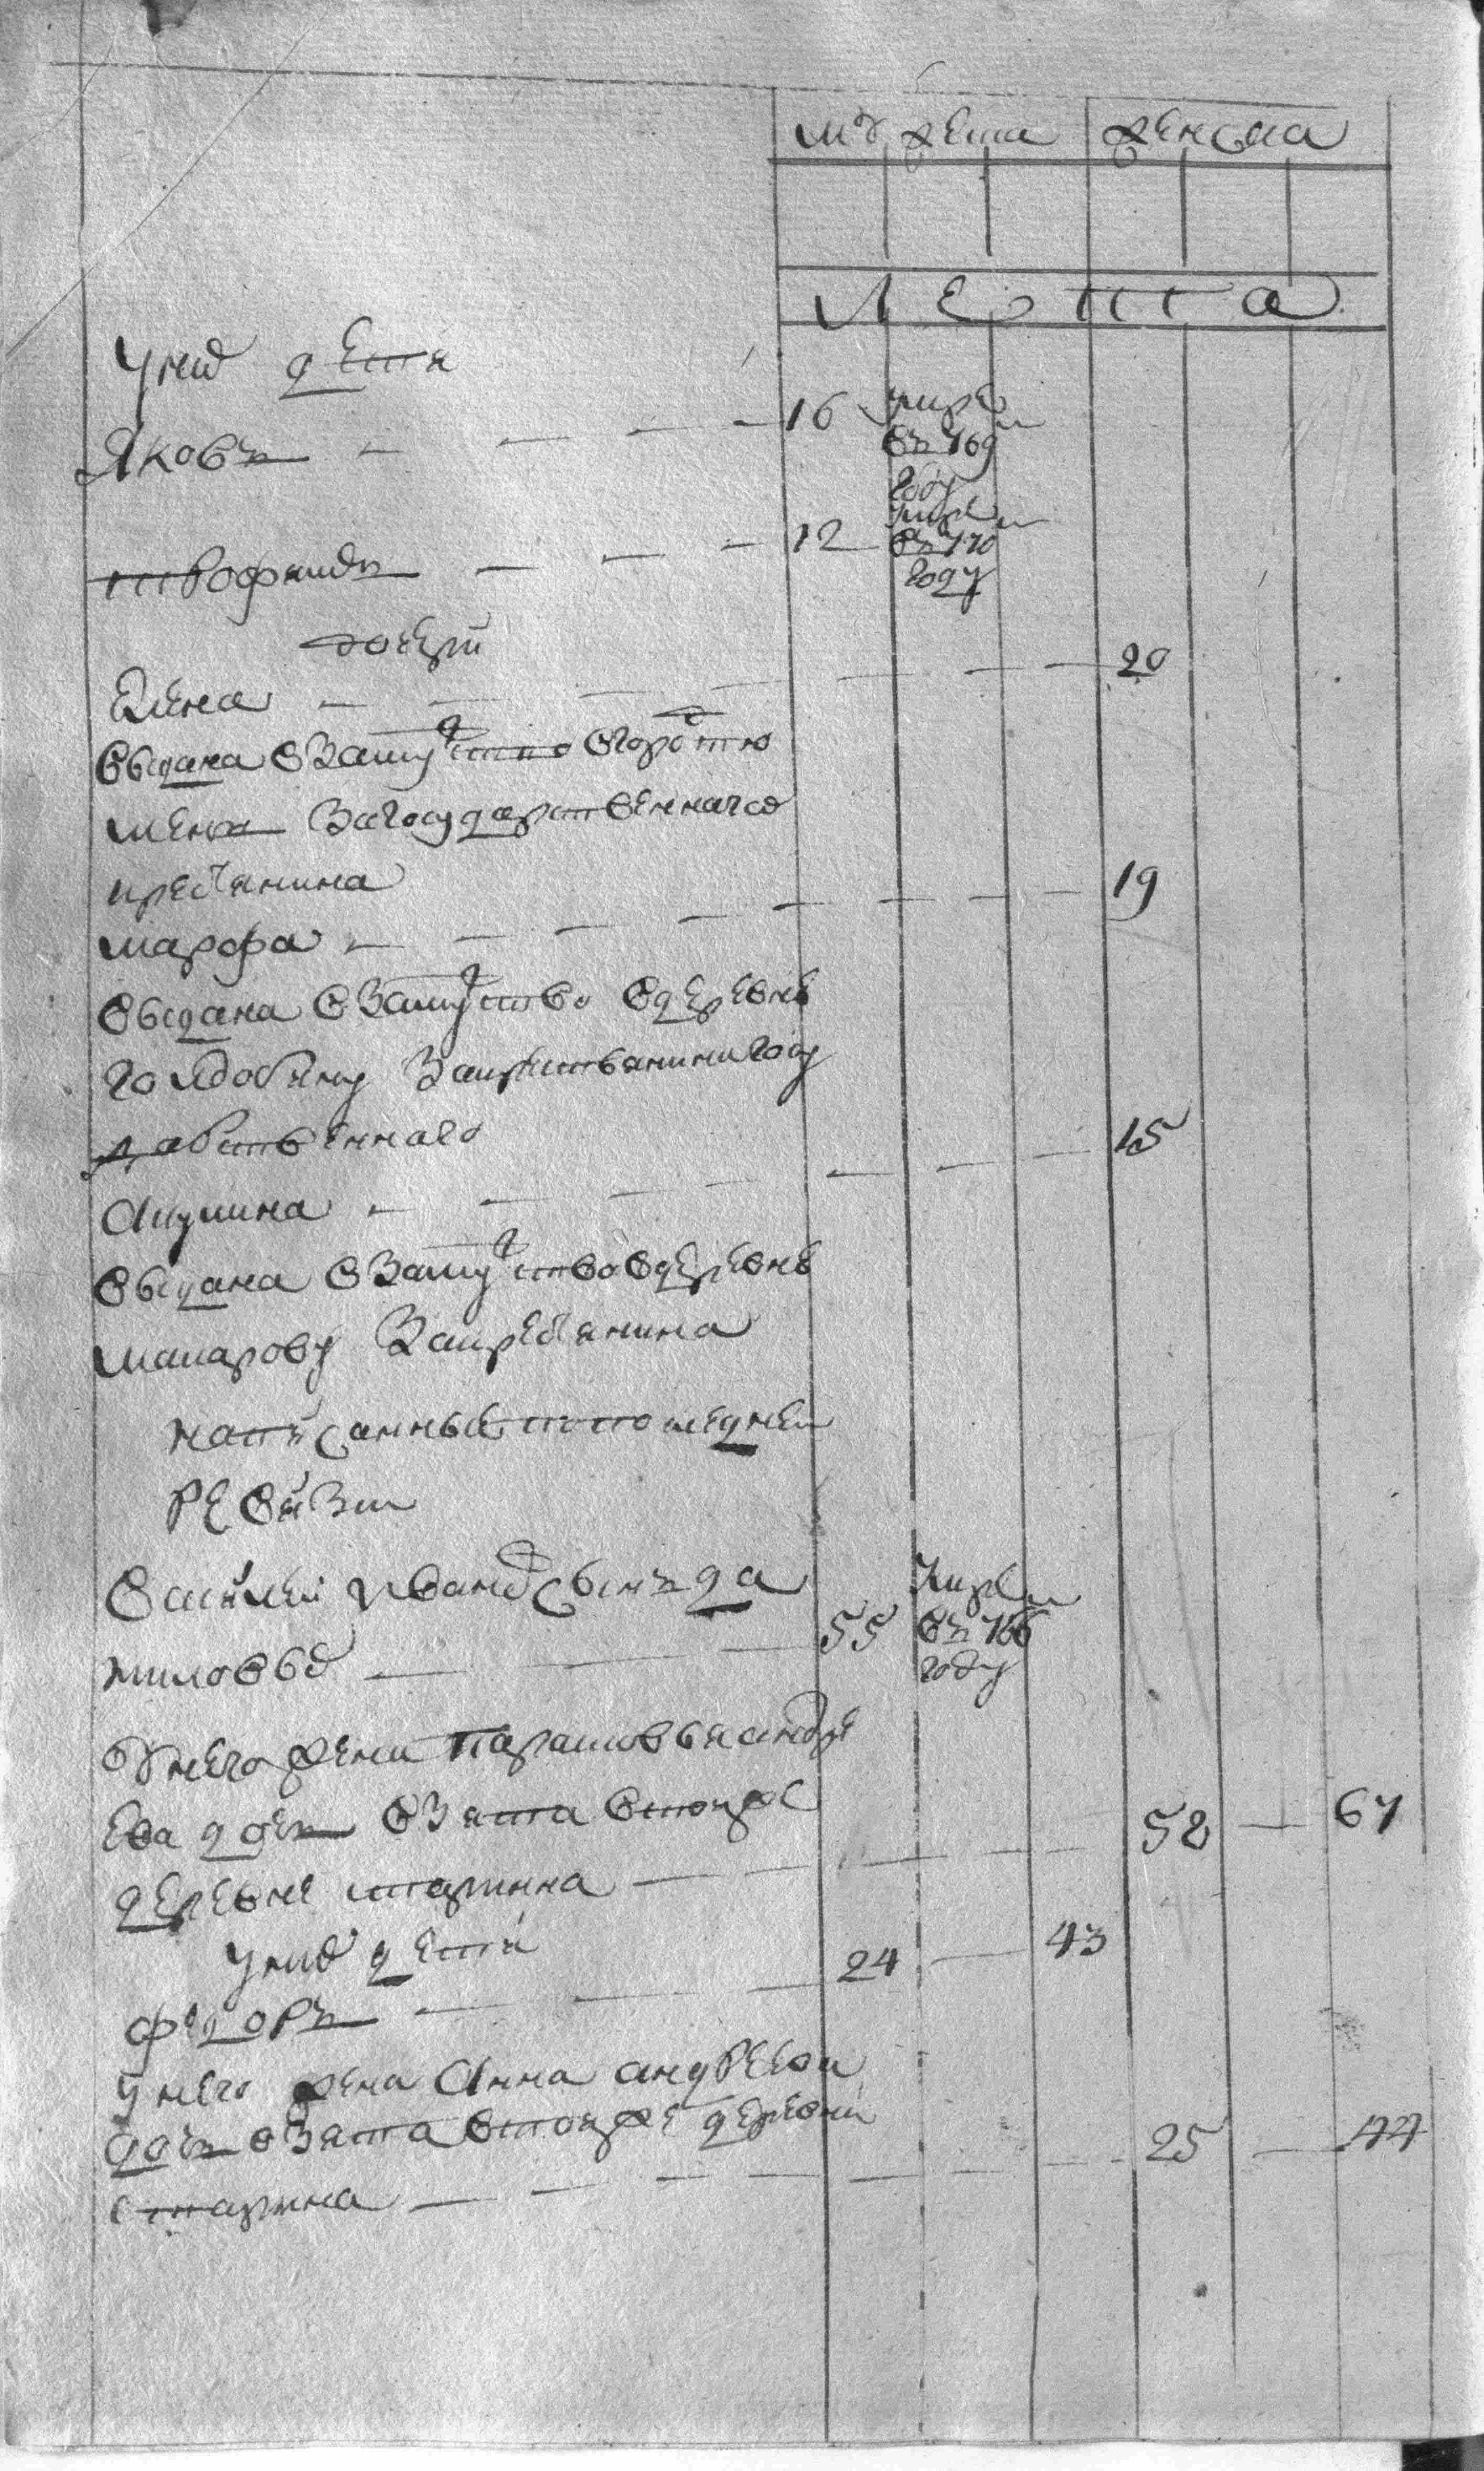 мꙋжеска женска
лета
у них дети
Яковъ 16 умре
въ 769
году
трофимъ 12 умре
въ 770
году
дочери
Елена 20
выдана взамужство вгород тю
мень загосударственнаго
крестьянина
марфа 19
выдана взамужство вдеревню
закрестьянина госу
дарственнаго
Акулина 15
выдана взамужство вдеревню
макарову закрестьянина
написанный попоследней
ревизи
Василей Иванов сынъ да
ниловых 55 умре
въ 766
году
У него жена Парасковья андре
ева дочь взята втойже
деревне старика 52 67
у них дети
федоръ 24 43
у него жена Анна андреева
дочь взята втойже деревни
старика 25 44